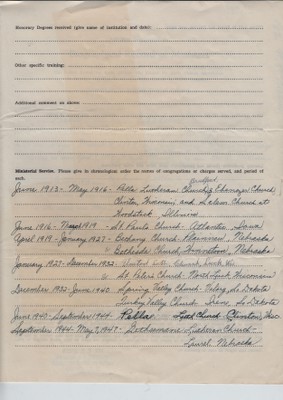 Honorary Degrees received (give name of institution and date)
Other specific training:
Additional comment on above:
Ministerial Service. Please give in chronological order the names of congregations or charges served, and period of
each.
June 1913 - May 1916 - Pella Lutheran Church & Ebenezer Church
Clinton, Wisconsin and Salem Church at
Woodstock Illinois
June 1916 - 1919 - St Pauls Church - Atlantic, Iowa
April 1919 - January 1927 - Bethany Church, Nebraska
Bethesda Church, Nebraska
January 1927 - December 1932 - Church,
St Peters Church - North Luck Wisconsin
December 1932 - June 1940 - Spring Valley Church - So Dakota
Turkey Valley Church - Irene So Dakota
June 1940 - September 1944 - Pella Luth Church Clinton, Wisc
September 1944 - May 7, 1947 - Gethsemane Lutheran Church -
Laurel, Nebraska